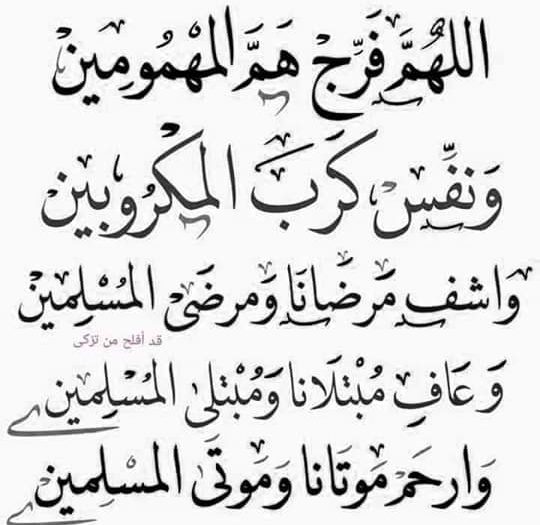 اللهُمَّ فَرِّجْ هَمَّ المَهْمُومِينَ
وَنَفِّسْ كَرَبَ المَكْرُوبِين
وَاشفِ مَرضَانَا وَمرضَىْ المُسْلِمِينْ
قد أفلح من تزكى
وَعَافِ مُبْتَلَانا وَمُبْتلى المُسْلِمِين
وَارحَمْ مَوتَانا وَمَوتَى المسْلِمين